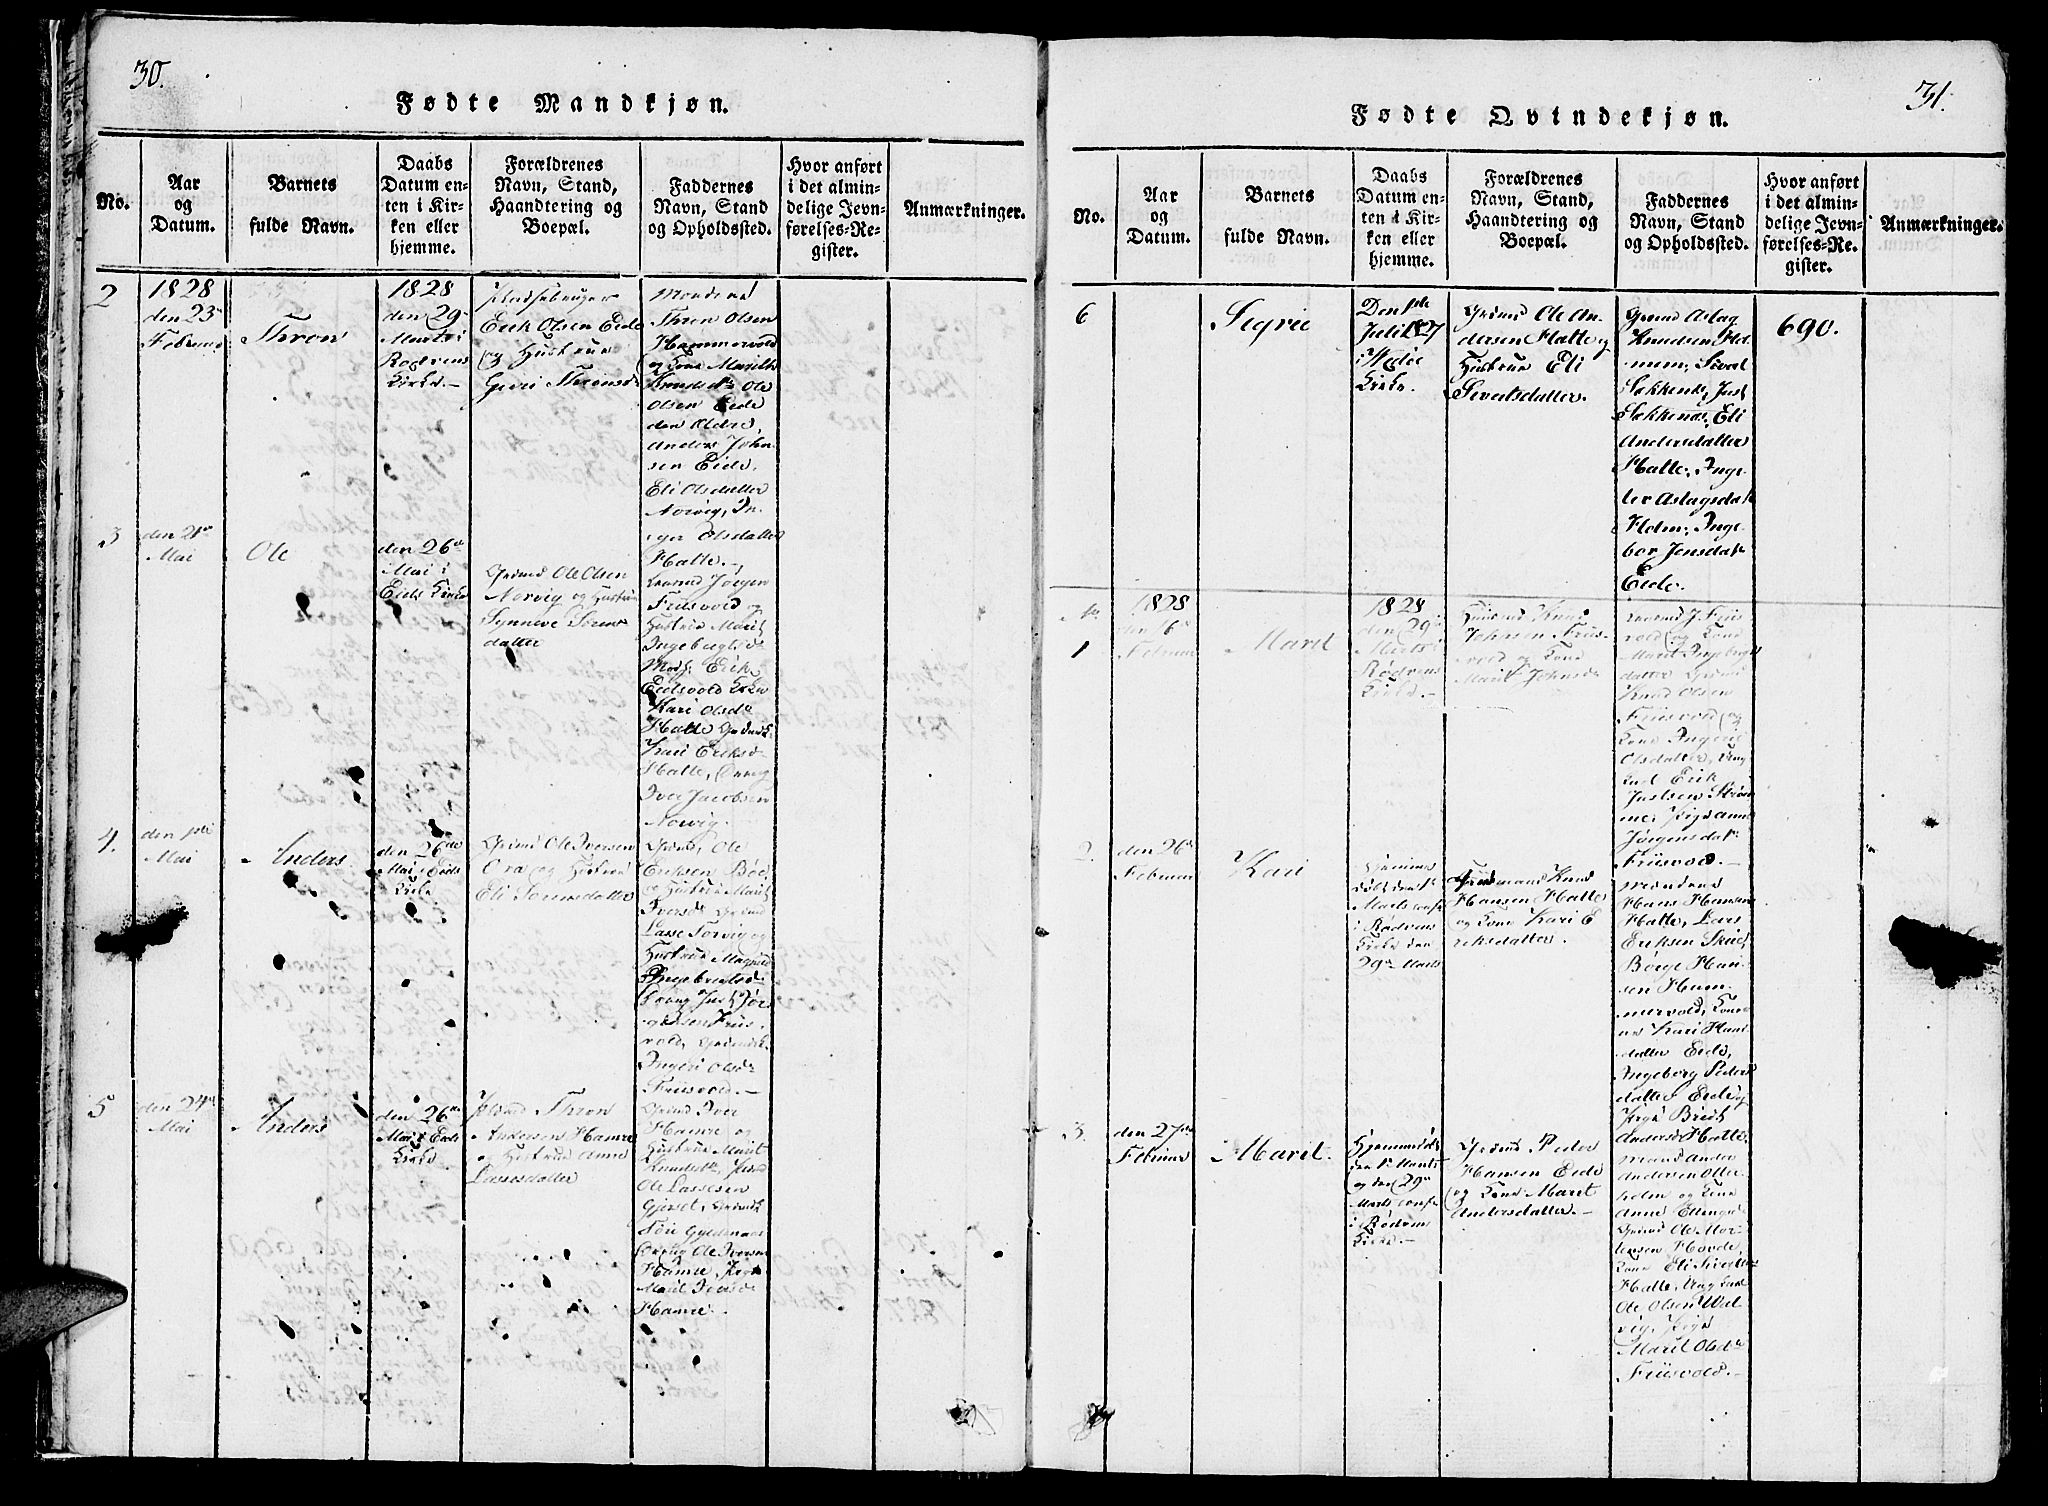 30.
Fødte Mandkjøn.
No.
Aar
og
Datum.
Barnets
fulde Navn.
Daabs
Datum en-
ten i Kir-
ken eller
hjemme.
Forældrenes
Navn, Stand,
Haandtering og
Boepæl.
Faddernes
Navn, Stand
og Opholdssted.
Hvor anført
i det almin-
delige Jevn-
førelses-Re-
gister.
Anmærkninger.
2
1828
den 23
Februar
Thron
1828
den 29
Marts i
Rødvens
Kirke.-
Pladsebruger
Erik Olsen Eide
og Hustrue
Guri Thronsd
Mændene
Thron Olsen
Hammervold
og Kone Marith
Knudsdr Ole
Olsen Eide
den Ældre,
Anders John-
sen Eide,
Eli Olsdatter
Norvig, In-
ger Olsdatter
Hatte.-
3
den 21
Mai
Ole
den 26
Mai i
Eids Kirke
Grdmd Ole Olsen
Norvig og Hustrue
Synneve Sørens
datter
Leonrd Jørgen
Friisvold og
Hustrue Marit
Ingebrigtsd
Erik
Eidsvold
Kari Olsdr
Hatte
Kari Eriksd
Hatte,
Iver Jacobsen
Norvig.
4.
den 1ste
Mai
Anders
den 26de
Mai i Eids
Kirke
Grdmd Ole Iversen
og Hustrue
Eli Sørensdatter
Grdmd, Ole
Eriksen Bøe
og Hustrue Marit
Iversd Grdmd
Lasse Torvig og
Hustrue
Ingebrigtsd
Just Jør-
gensen Friis-
vold,
Ingeri Olsdr
Friisvold.-
5
den 24
Mai
Anders
den 26
Mai i Eids
Kirke
Thron
Andersen Hamre
og Hustrue Anne
Lassesdatter
Grdmd Iver
Hamre og
Hustrue Marit
Knudsdr,
Ole Lassesen
Gjersel,
Ole Iversen
Hamre,
Marit Iversd
Hamre.-
31.
Fødte Qvindekjøn.
No.
Aar
og
Datum.
Barnets
fulde Navn.
Daabs
Datum en-
ten i Kir-
ken eller
hjemme.
Forældrenes
Navn, Stand,
Haandtering og
Boepæl.
Faddernes
Navn, Stand
og Opholdssted.
Hvor anført
i det almin-
delige Jevn-
førelses-Re-
gister.
Anmærkninger.
6
Sigrie
Den 1ste
Juli 1827
i
Kirke.
Grdmd Ole An-
dersen Hatte og
Hustrue Eli
Sivertsdatter.
Grdmd Aslag
Knudsen Hol-
mem,
Sækkenæs, Just
Sækkenæs, Eli
Andersdatter
Hatte, Inge-
bor Aslagsdatr
Holm, Inge-
bor Jensdatr
Eide.
690.
No
1
1828
den 16
Februar
Marit
1828
den 29
Marts i
Rødvens
Kirke.-
Huusmd Knud
Johnsen Friis-
vold og Kone
Marit Johnsdr
Leonrd J. Friis
vold og Kone
Marit Ingebrigts
datter Grdmd
Knud Olsen
Friisvold og
Kone Ingeri
Olsdatter, Ung
karl Erik
Justsen Strøm
me, Pige Anne
Jørgensdatr
Friisvold.-
2.
den 26
Februar
Kari
Hjemme
døbt den 1st
Marts conf.
i Rødvens
Kirke den
29de Marts
Knud
Hansen Hatte
og Kone Kari E-
riksdatter.
Mændene
Hans Hansen
Hatte, Lars
Eriksen
Børge Han-
sen Ham-
mervold, Kone
ne Kari Hans
datter Eide,
Ingeborg Peders
datter Eide og
Pige Brit
Andersd Hatte.
3.
den 27de
Februar
Marit.
Hjemmedøbt
den 1st Marts
og den 29de
Marts conf.
i Rødvens
Kirke.-
Grdmd Peder
Hansen Eide
og Kone Marit
Andersdatter.-
Mænd Anders
Andersen Otter-
holm og Kone
Anne
Grdmd Ole Mor-
tensen Hovde,
Kone Eli Sivertsdr
Hatte, Ung Karl
Ole Olsen
vig, Pige
Marit Olsdr
Friisvold.-